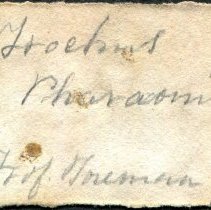 Trochus
Pharaoni
Prof. Foreman